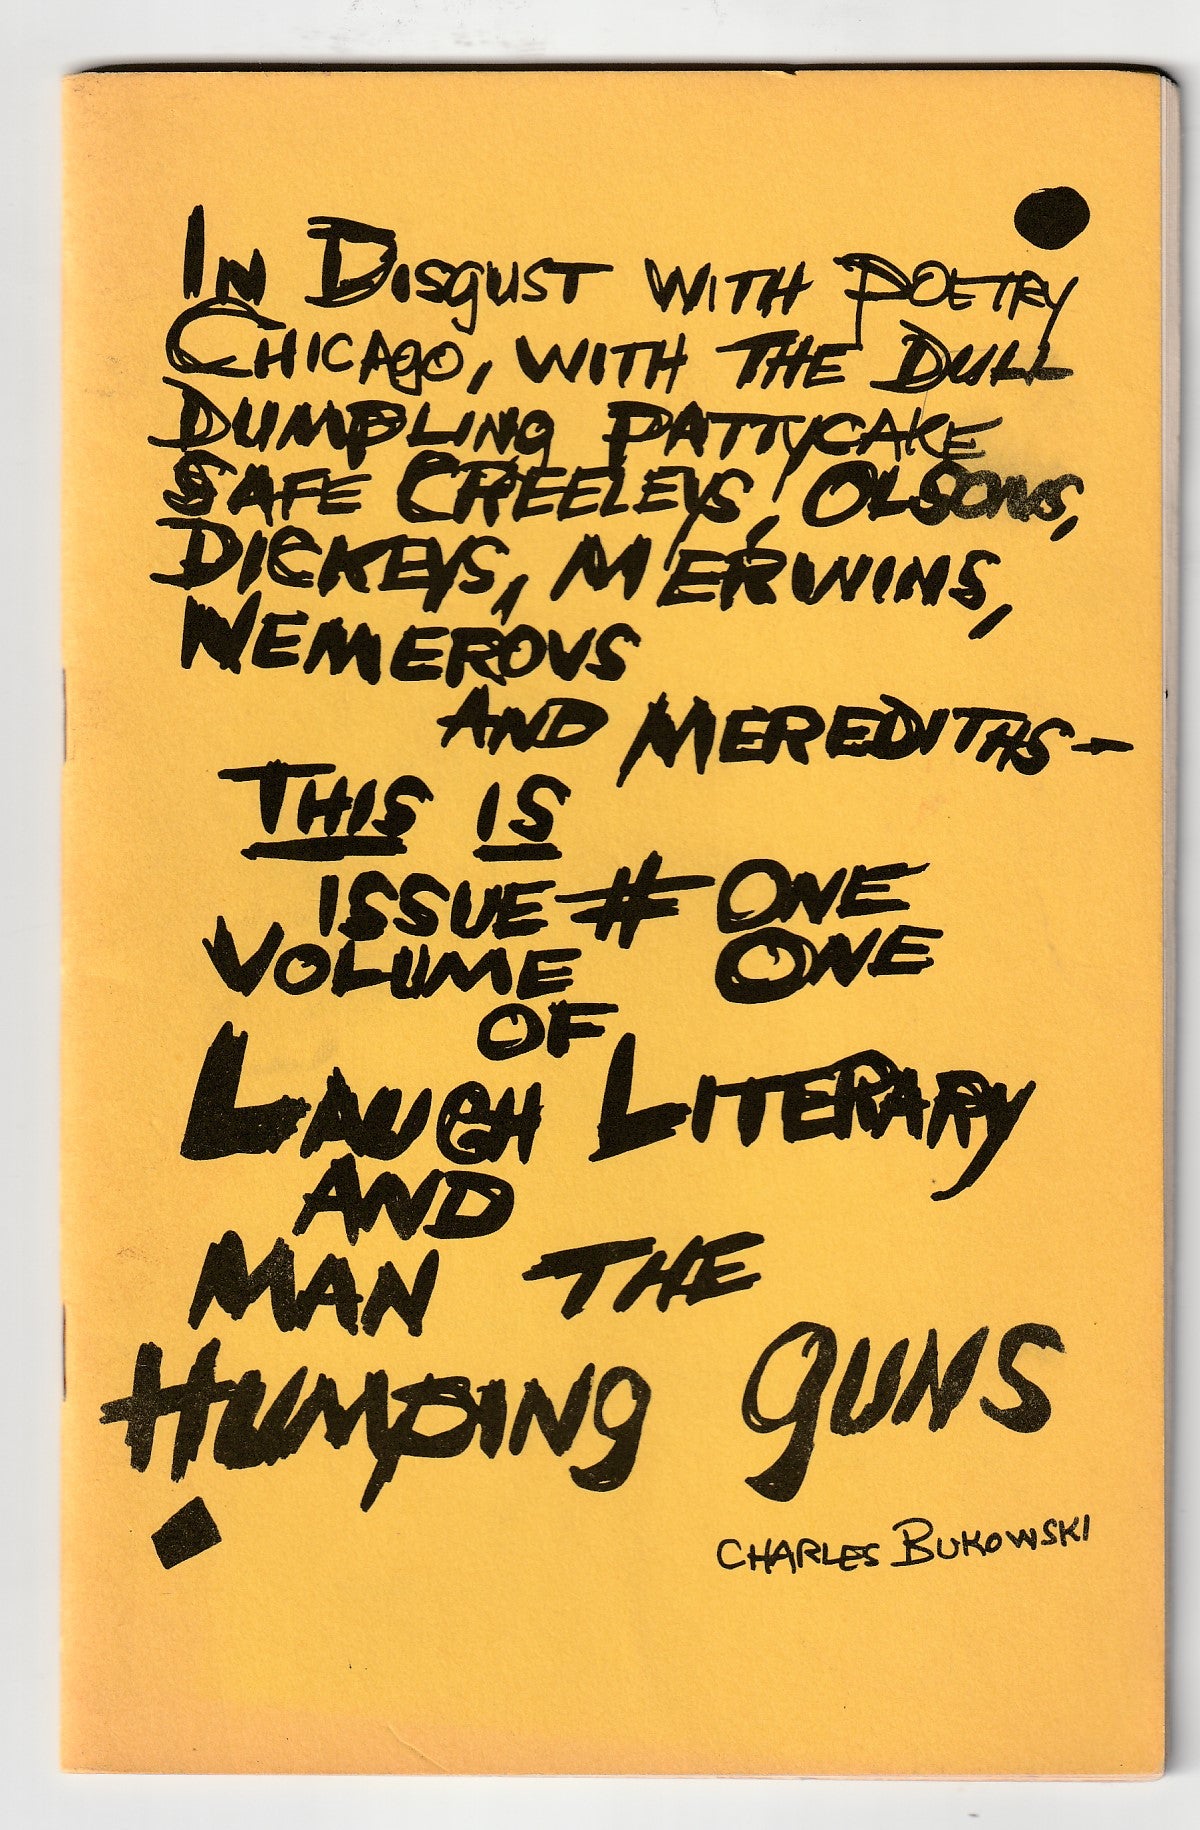 In Disgust with Poetry
Chicago, with the Dull
Dumpling Pattycake
Safe Creeleys, Olsons,
Dickeys, Merwins,
Nemerovs
and Merediths-
This is
issue # One
Volume One
of
Laugh Literary
and
Man the
Humping guns
Charles Bukowski